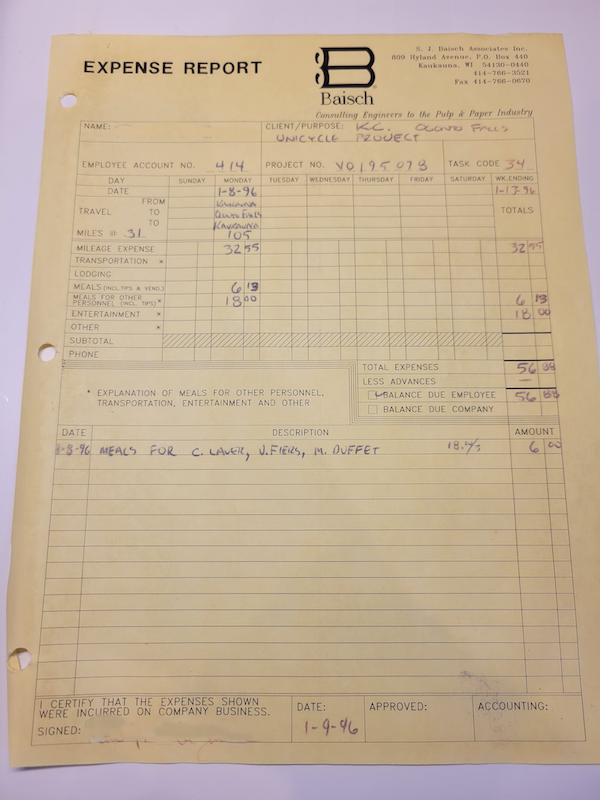 EXPENSE REPORT
B
Baisch
S. J. Baisch Associates Inc.
809 Hyland Avenue, P.O. Box 440
Kaukauna, WI 54130-0440
414-766-3521
Fax 414-766-0670
Consulting Engineers to the Pulp & Paper Industry
NAME:
CLIENT/PURPOSE: K.C. OCONTO FALLS
UNICYCLE PROJECT
EMPLOYEE ACCOUNT NO. 414 PROJECT NO. VO195078 TASK CODE 34
DAY SUNDAY MONDAY TUESDAY WEDNESDAY THURSDAY FRIDAY SATURDAY WK.ENDING
DATE 1-8-96 1-13-96
FROM KAUKAUNA
TRAVEL TO OCONTO FALLS TOTALS
TO KAUKAUNA
MILES @ .31 105
MILEAGE EXPENSE 32 55 32 55
TRANSPORTATION *
LODGING
MEALS (INCL.TIPS & VEND.) 6 13
MEALS FOR OTHER PERSONNEL (INCL. TIPS) * 18 00 6 13
ENTERTAINMENT * 18 00
OTHER *
SUBTOTAL
PHONE
TOTAL EXPENSES 56 88
LESS ADVANCES —
BALANCE DUE EMPLOYEE 56 88
BALANCE DUE COMPANY
* EXPLANATION OF MEALS FOR OTHER PERSONNEL,
TRANSPORTATION, ENTERTAINMENT AND OTHER
DATE DESCRIPTION AMOUNT
1-8-96 MEALS FOR C. LAUER, J. FIERS, M. DUFFET 6 00
I CERTIFY THAT THE EXPENSES SHOWN
WERE INCURRED ON COMPANY BUSINESS.
SIGNED:
DATE:
1-9-96
APPROVED:
ACCOUNTING: